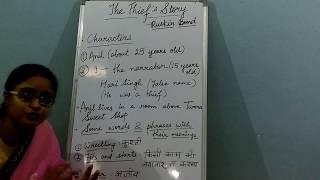 The Thief's Story
Ruskin Bond
Characters
① Anil (about 25 years old)
② I the narrator (15 years old)
Hari Singh (False name)
(He was a thief)
Anil lives in a room above Jumna
Sweet Shop
Some words & phrases with
their meanings
① Wrestling - कुश्ती
② Fits and starts - किसी काम को
लगातार न करना
अजीब